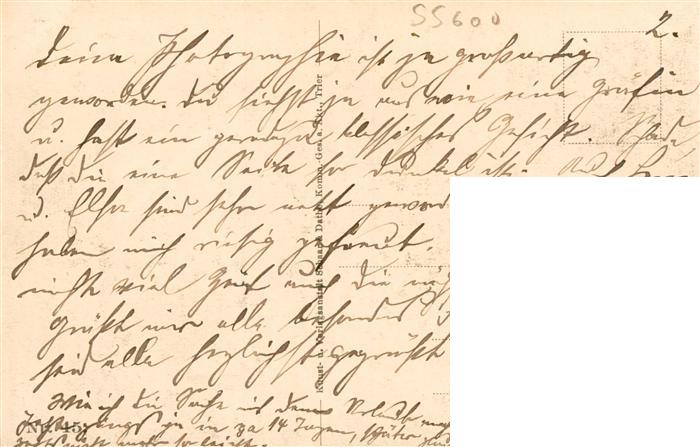 SS600
2.
Deine Photographie ist ja großartig
geworden. Du siehst ja aus wie eine Gräfin
u. hast ein geradezu klassisches Gesicht. Schade,
daß die eine Seite so dunkel ist. Auch
u. Elsa sind sehr nett
haben mich riesig gefreut.
nicht viel auch die
Grüßt mir alle besonders
seid alle herzlichst gegrüßt
Wie ich die Sache mit dem Urlaub
ja in za 14 Tagen, später
Kunst- u. Verlagsanstalt Schaar & Dathe, Komm.-Ges. a. Akt., Trier